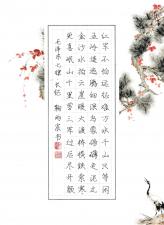 红军不怕远征难万水千山只等闲
五岭逶迤腾细浪乌蒙磅礴走泥丸
金沙水拍云崖暖大渡桥横铁索寒
更喜岷山千里雪三军过后尽开颜
毛泽东七律 长征 鞠雨宸书